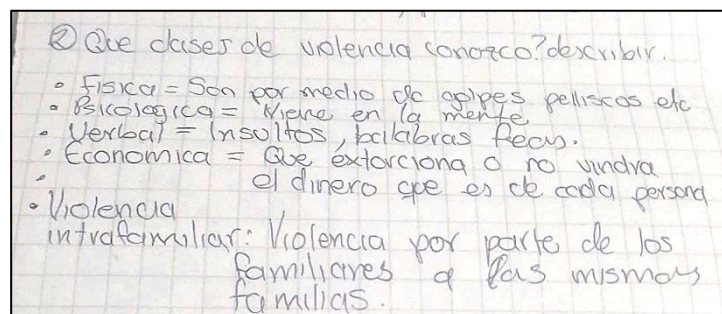 ② Que clases de violencia conozco? describir.
• Fisica = Son por medio de golpes pelliscos etc
• Psicologica = Viene en la mente
• Verbal = Insultos, palabras feas.
• Economica = Que extorciona o no
• el dinero que es de cada persona
• Violencia
intrafamiliar: Violencia por parte de los
familiares a las mismas
familias.